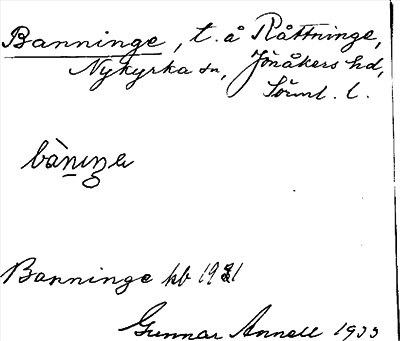 Banninge, t. å Råttninge,
Nykyrka sn, Jönåkers hd,
Sörml. l.
bàniŋe
Banninge kb 1931
Gunnar Annell 1933